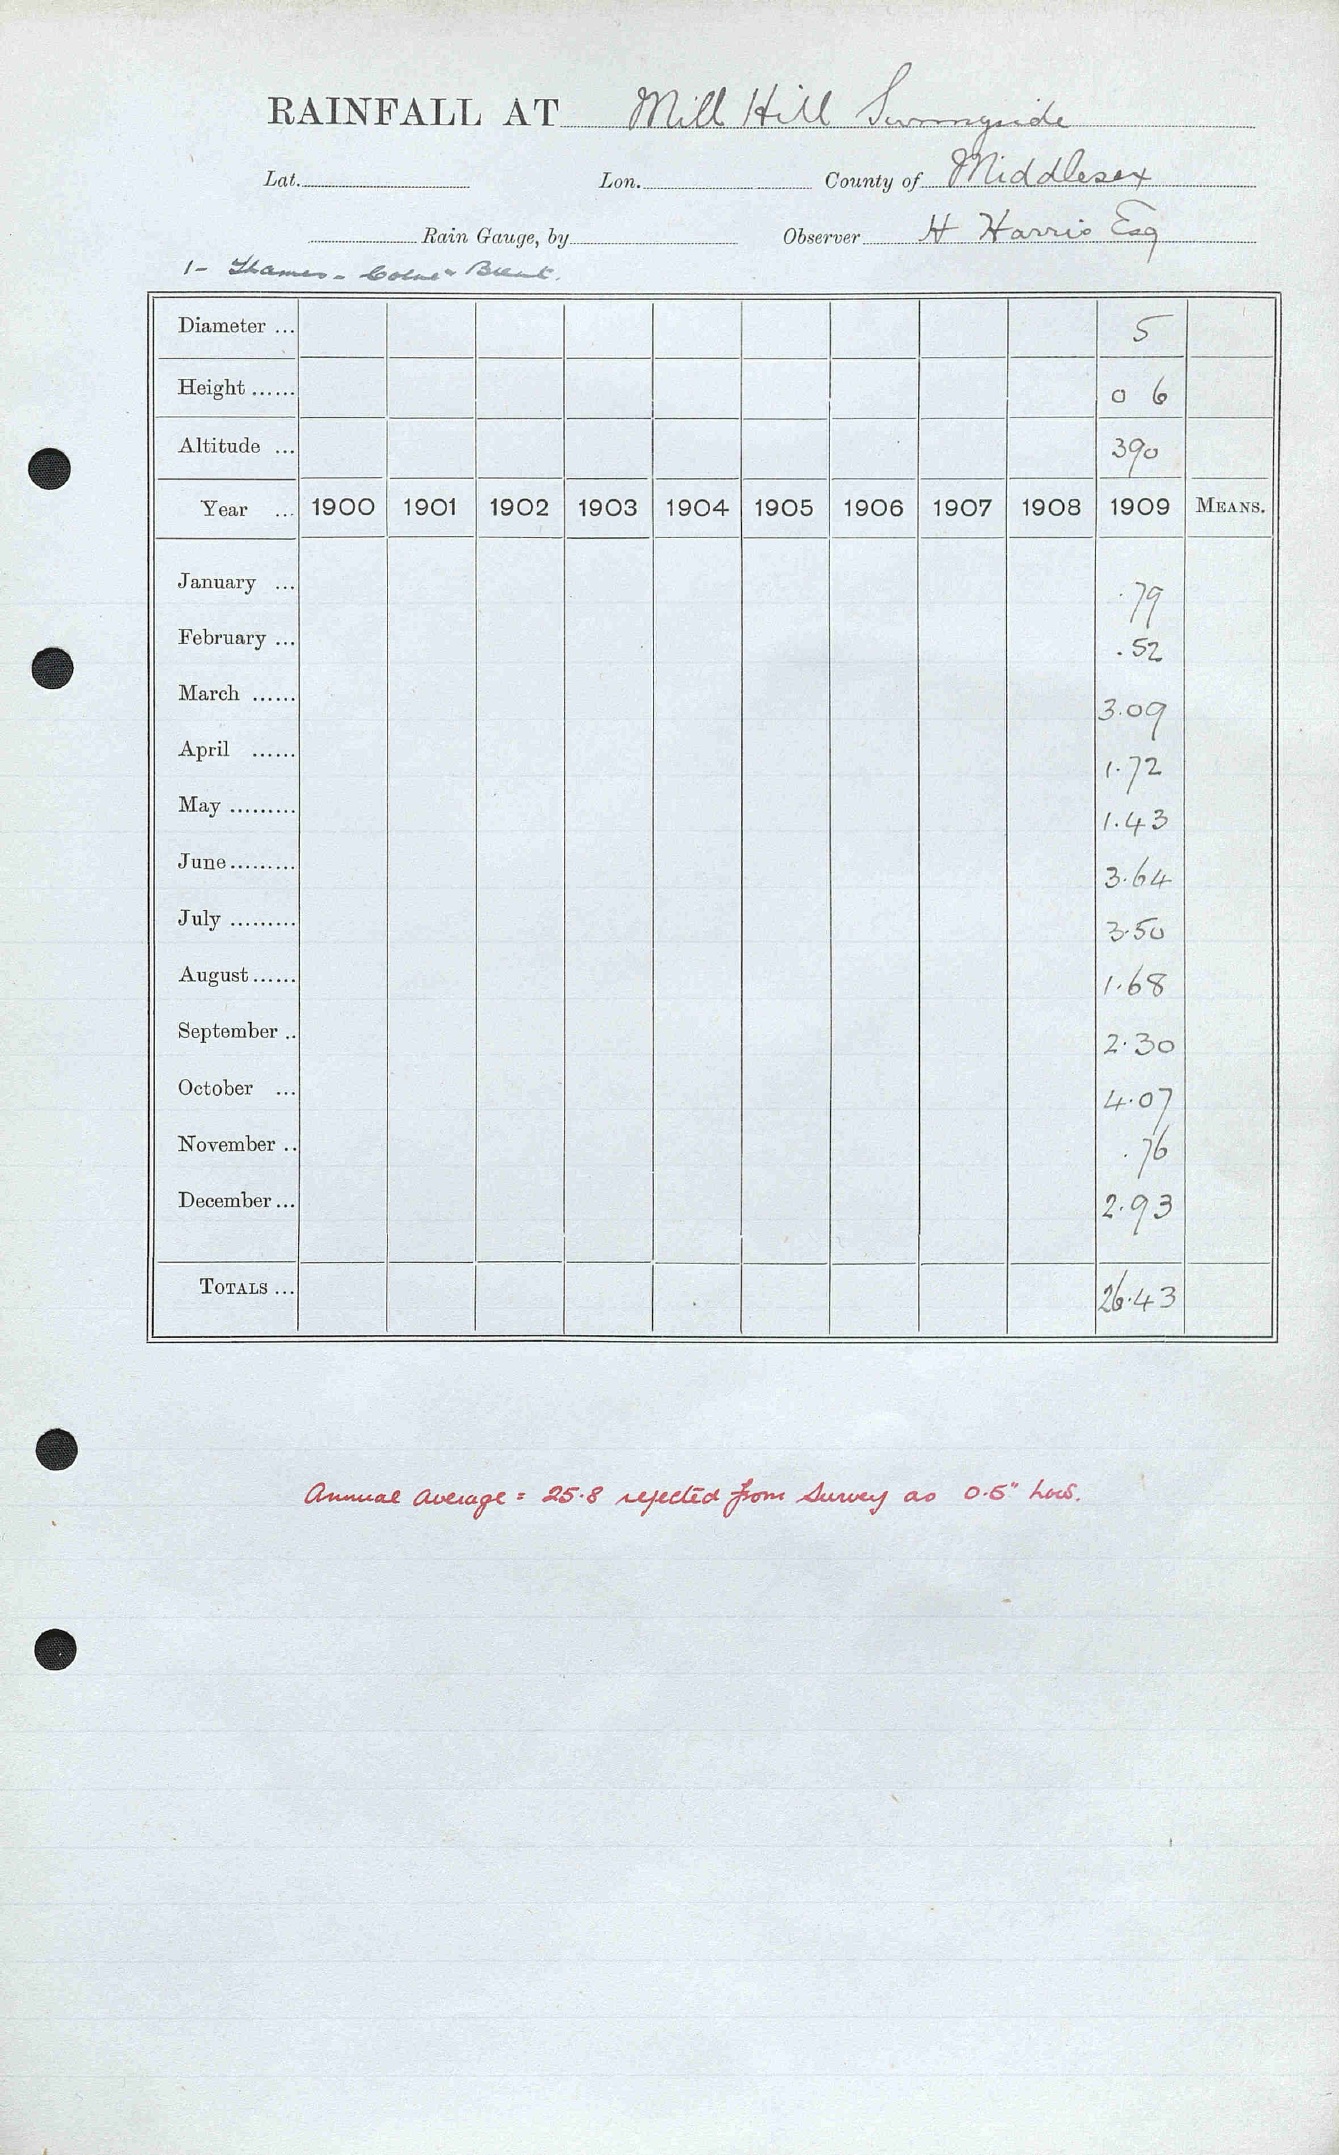 RAINFALL AT Mill Hill Sunnyside
Lat. Lon. County of Middlesex
Rain Gauge, by Observer H Harris Esq
1 - Thames - Colne & Brent.
Diameter ... 5
Height ...... 0 6
Altitude ... 390
Year ... 1900 1901 1902 1903 1904 1905 1906 1907 1908 1909 MEANS.
January ... .79
February ... .52
March ...... 3.09
April ...... 1.72
May ......... 1.43
June ......... 3.64
July ......... 3.50
August ...... 1.68
September .. 2.30
October ... 4.07
November .. .76
December ... 2.93
TOTALS ... 26.43
Annual average = 25.8 rejected from Survey as 0.5" low.